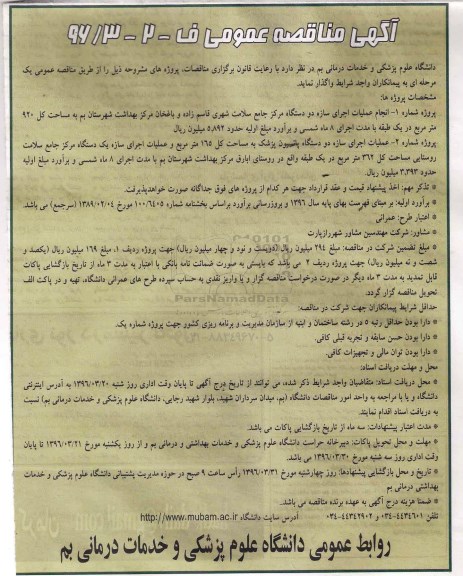 آگهی مناقصه عمومی ف - ۲ - ۹۶/۳
دانشگاه علوم پزشکی و خدمات درمانی بم در نظر دارد با رعایت قانون برگزاری مناقصات، پروژه های مشروحه ذیل را از طریق مناقصه عمومی یک
مرحله ای به پیمانکاران واجد شرایط واگذار نماید.
مشخصات پروژه ها:
پروژه شماره ۱- انجام عملیات اجرای سازه دو دستگاه مرکز جامع سلامت شهری قاسم زاده و باغخان مرکز بهداشت شهرستان بم به مساحت کل ۹۲۰
متر مربع در یک طبقه با مدت اجرای ۸ ماه شمسی و برآورد مبلغ اولیه حدود ۵،۸۹۲ میلیون ریال.
پروژه شماره ۲- عملیات اجرای سازه دو دستگاه پانسیون پزشک به مساحت کل ۱۶۵ متر مربع و عملیات اجرای سازه یک دستگاه مرکز جامع سلامت
روستایی مساحت کل ۳۶۲ متر مربع در یک طبقه واقع در روستای ابارق مرکز بهداشت شهرستان بم با مدت اجرای ۸ ماه شمسی و برآورد مبلغ اولیه
حدود ۳،۳۹۳ میلیون ریال.
* تذکر مهم: اخذ پیشنهاد قیمت و عقد قرارداد جهت هر کدام از پروژه های فوق جداگانه صورت خواهد پذیرفت.
* برآورد اولیه: بر مبنای فهرست بهای پایه سال ۱۳۹۶ و بروزرسانی برآورد براساس بخشنامه شماره ۱۰۰/۶۴۰۵ مورخ ۱۳۸۹/۰۲/۰۴ (سرجمع) می باشد.
* اعتبار طرح: عمرانی
* مشاور: شرکت مهندسین مشاور شهرآرازپارت
* مبلغ تضمین شرکت در مناقصه: مبلغ ۲۹۴ میلیون ریال (دویست و نود و چهار میلیون ریال) جهت پروژه ردیف ۱، مبلغ ۱۶۹ میلیون ریال (یکصد و
شصت و نه میلیون ریال) جهت پروژه ردیف ۲ می باشد که بایستی به صورت ضمانت نامه بانکی با اعتبار به مدت ۳ ماه از تاریخ بازگشایی پاکات
قابل تمدید به مدت ۳ ماه دیگر در صورت درخواست مناقصه گزار و یا واریز نقدی به حساب سپرده طرح های عمرانی دانشگاه، تهیه و در پاکت الف
تحویل مناقصه گزار گردد.
حداقل شرایط پیمانکاران جهت شرکت در مناقصه:
* دارا بودن حداقل رتبه ۵ در رشته ساختمان و ابنیه از سازمان مدیریت و برنامه ریزی کشور جهت پروژه شماره یک.
* دارا بودن حسن سابقه و تجربه قبلی کافی.
* دارا بودن توان مالی و تجهیزات کافی.
محل و مهلت دریافت اسناد:
* محل دریافت اسناد: متقاضیان واجد شرایط ذکر شده، می توانند از تاریخ درج آگهی تا پایان وقت اداری روز شنبه ۱۳۹۶/۰۳/۲۰ به آدرس اینترنتی
دانشگاه و یا با مراجعه به واحد امور مناقصات دانشگاه (بم، میدان سرداران شهید، بلوار شهید رجایی، دانشگاه علوم پزشکی و خدمات درمانی بم) نسبت
به دریافت اسناد اقدام نمایند.
* مدت اعتبار پیشنهادات: سه ماه از تاریخ بازگشایی پاکات می باشد.
* مهلت و محل تحویل پاکات: دبیرخانه حراست دانشگاه علوم پزشکی و خدمات بهداشتی و درمانی بم و از روز یکشنبه مورخ ۱۳۹۶/۰۳/۲۱ تا پایان
وقت اداری روز سه شنبه مورخ ۱۳۹۶/۰۳/۳۰ می باشد.
* تاریخ و محل بازگشایی پیشنهادها: روز چهارشنبه مورخ ۱۳۹۶/۰۳/۳۱ رأس ساعت ۹ صبح در حوزه مدیریت پشتیبانی دانشگاه علوم پزشکی و خدمات
بهداشتی درمانی بم
* ضمنا هزینه درج آگهی به عهده برنده مناقصه می باشد.
تلفن ۰۳۴-۴۴۳۴۶۰۱ و ۰۳۴-۴۴۳۴۲۹۰۲ آدرس سایت دانشگاه http://www.mubam.ac.ir
روابط عمومی دانشگاه علوم پزشکی و خدمات درمانی بم
ParsNamadData